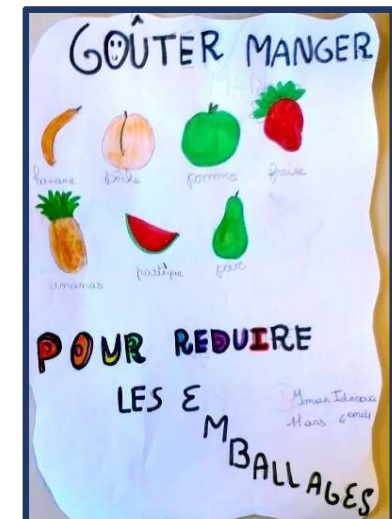 GOÛTER MANGER
banane pêche pomme fraise
ananas pastèque poire
POUR REDUIRE
LES EMBALLAGES
Mars 6eme